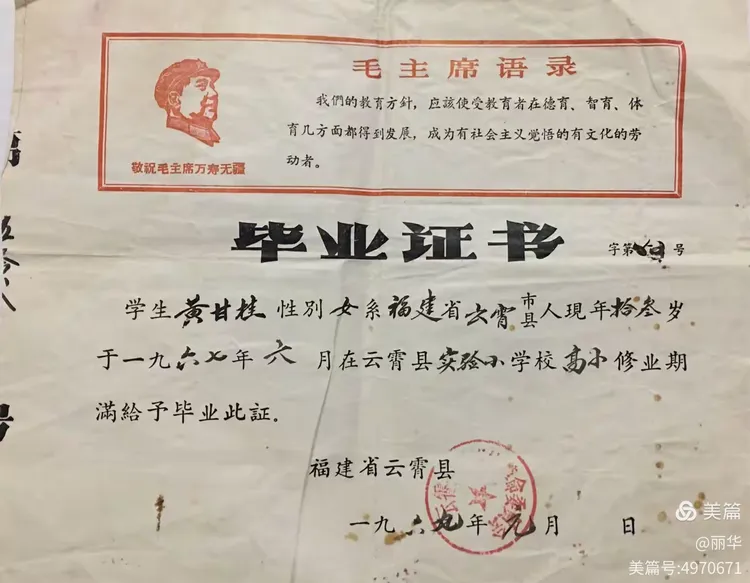 毛主席语录
我們的教育方針，应該使受教育者在德育、智育、体
育几方面都得到发展，成为有社会主义觉悟的有文化的劳
动者。
敬祝毛主席万寿无疆
毕业证书
字第 号
学生黄甘桂性別女系福建省云霄市县人現年拾叁岁
于一九六七年六月在云霄县实验小学校高小修业期
滿給予毕业此証。
福建省云霄县
一九六九年元月 日
美篇
@丽华
美篇号:4970671